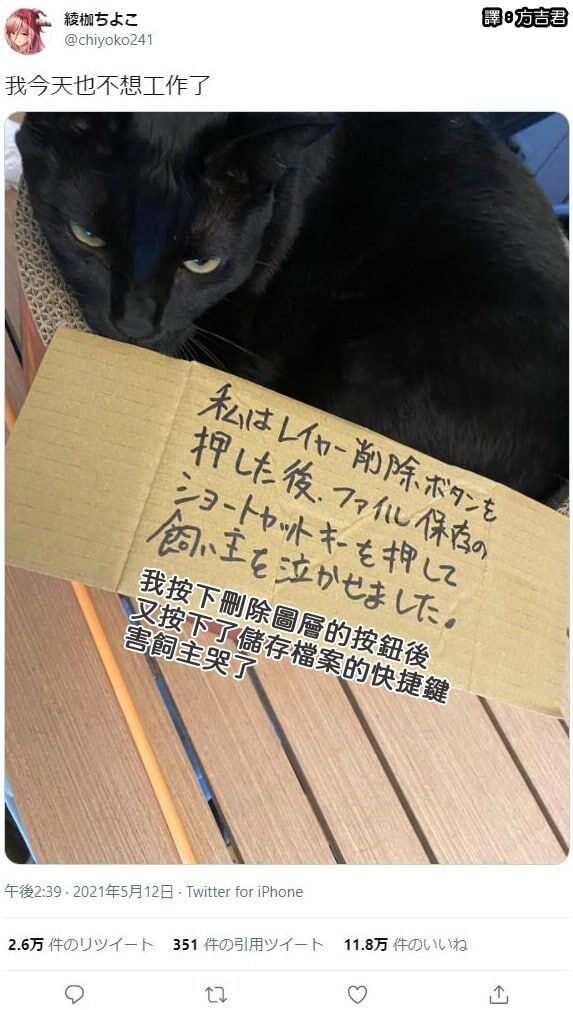 綾枷ちよこ
@chiyoko241
譯:方吉君
我今天也不想工作了
私はレイヤー削除ボタンを
押した後、ファイル保存の
ショートカットキーを押して
飼い主を泣かせました。
我按下刪除圖層的按鈕後
又按下了儲存檔案的快捷鍵
害飼主哭了
午後2:39 · 2021年5月12日 · Twitter for iPhone
2.6万 件のリツイート 351 件の引用ツイート 11.8万 件のいいね